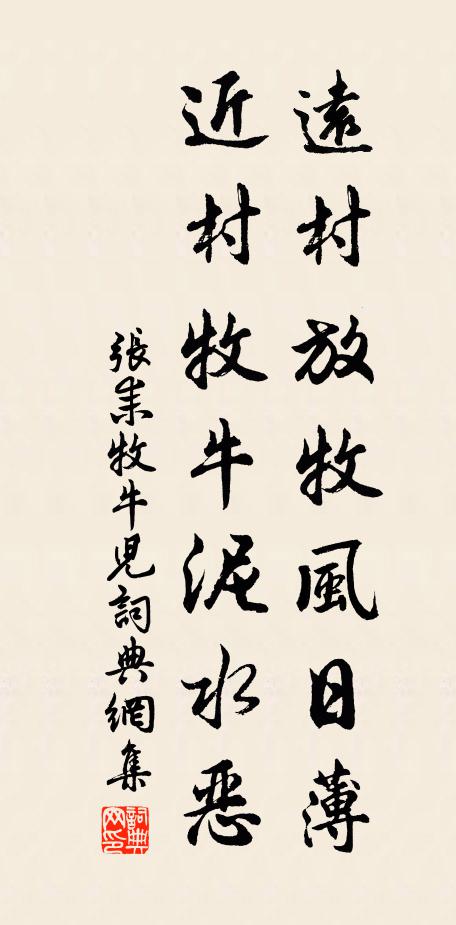 遠村放牧風日薄
近村牧牛泥水惡
張耒牧牛兒詞典網集
詞典網印